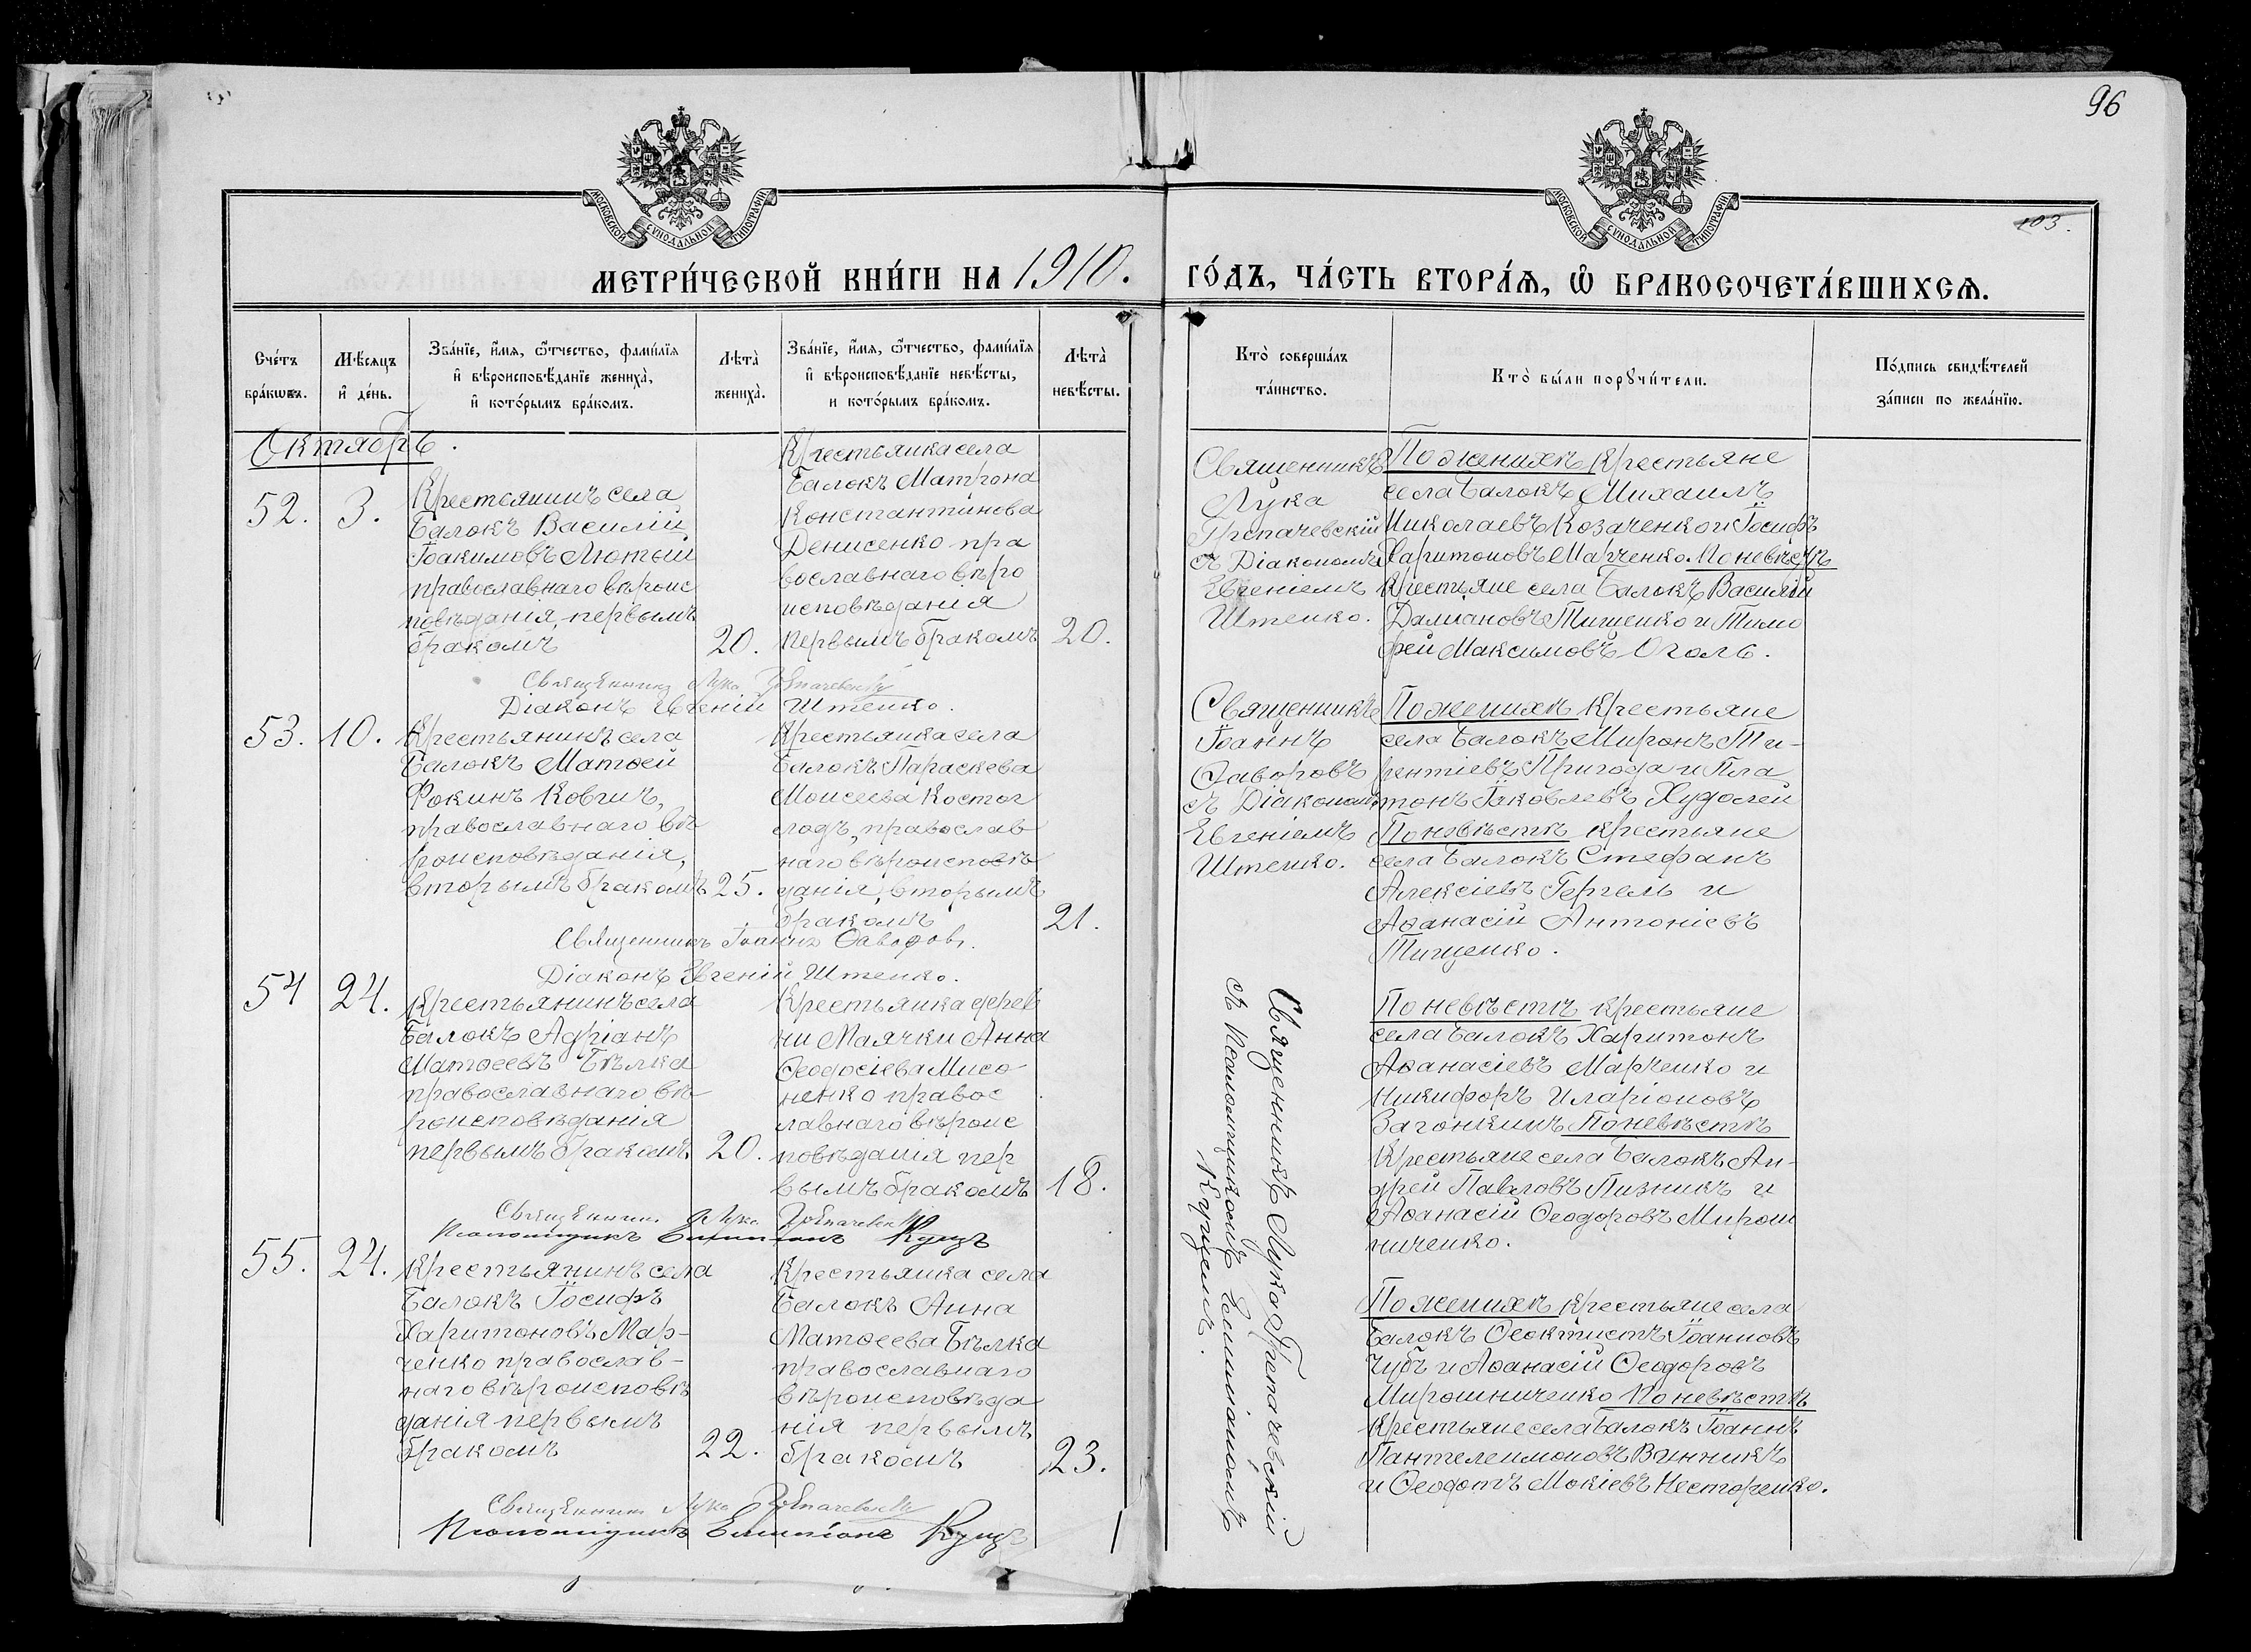 96
МОСКОВСКОЙ СѴНОДАЛЬНОЙ ТИПОГРАФІИ
МОСКОВСКОЙ СѴНОДАЛЬНОЙ ТИПОГРАФІИ
103.
МЕТРИ́ЧЕСКОЙ КНИ́ГИ НА 1910.
ГО́ДЪ, ЧА́СТЬ ВТОРА́Ѧ, Ѡ БРАКОСОЧЕТА́ВШИХСѦ.
Сче́тъ бра́кωвъ.
Мѣ́сяцъ и҆ де́нь.
Зва́нїе, и҆́мѧ, ѻ҆́тчество, фами́лїѧ
и҆ вѣроисповѣ́данїе жениха̀,
и҆ кото́рымъ бра́комъ.
Лѣта̀ жениха̀.
Зва́нїе, и҆́мѧ, ѻ҆́тчество, фами́лїѧ
и҆ вѣроисповѣ́данїе невѣ́сты,
и кото́рымъ бра́комъ.
Лѣта̀ невѣ́сты.
Кто̀ соверша́лъ
та́инство.
Кто̀ бы́ли порꙋчи́тели.
По́дпись свидѣ́телей
за́писи по жела́нїю.
Октябрь.
52.
3.
Крестьянинъ села
Балокъ Василій
Іоакимовъ Лютый
православнаго вѣроис
повѣданія, первымъ
бракомъ
20.
Крестьянка села
Балокъ Матрона
Константинова
Денисенко пра
вославнаго вѣро
исповѣданія
первымъ бракомъ
20.
Священникъ
Лука
съ Діакономъ
Евгеніемъ
Штепко.
По женихѣ Крестьяне
села Балокъ Михаилъ
Николаевъ Козаченко и Іосифъ
Харитоновъ Марченко. По невѣстѣ
Крестьяне села Балокъ Василій
Даміановъ Тищенко и Тимо
фей Максимовъ Оголь.
Священникъ Лука
Діаконъ Евгеній Штепко.
53.
10.
Крестьянинъ села
Балокъ Матѳей
Фокинъ Ковгич,
православнаго вѣ
роисповѣданія,
вторымъ бракомъ
25.
Крестьянка села
Балокъ Параскева
Моисеева Костог
лодъ, православ
наго вѣроисповѣ
данія, вторымъ
бракомъ
21.
Священникъ
Іоаннъ
Ѳаворовъ
съ Діакономъ
Евгеніемъ
Штепко.
По женихѣ Крестьяне
села Балокъ Миронъ Ти-
рентіевъ Пригода и Пла
тонъ Іаковлевъ Худолей
По невѣстѣ крестьяне
села Балокъ Стефанъ
Алексіевъ Гергель и
Аѳанасій Антоніевъ
Тищенко.
Священникъ Іоаннъ Ѳаворовъ.
Діаконъ Евгеній Штепко.
54
24.
Крестьянинъ села
Балокъ Адріанъ
Матѳеевъ Бѣлка
православнаго вѣ
роисповѣданія
первымъ бракомъ
20.
Крестьянка дерев
ни Маячки Анна
Ѳеодосіева Мисо
ненко правос
лавнаго вѣроис
повѣданія пер
вымъ бракомъ
18.
Священникъ Лука
съ Псаломщикомъ
Куцемъ.
По невѣстѣ крестьяне
села Балокъ Харитонъ
Аѳанасіевъ Марченко и
Никифоръ Иларіоновъ
Загонкинъ По невѣстѣ
Крестьяне села Балокъ Ан-
дрей Павловъ Пизникъ и
Аѳанасій Ѳеодоровъ Мирош
ниченко.
Священникъ Лука
Псаломщикъ Куцъ
55.
24.
Крестьянинъ села
Балокъ Іосифъ
Харитоновъ Мар-
ченко православ-
наго вѣроисповѣ
данія первымъ
бракомъ
22.
Крестьянка села
Балокъ Анна
Матѳеева Бѣлка
православнаго
вѣроисповѣда
нія первымъ
бракомъ
23.
По женихѣ крестьяне села
Балокъ Ѳеоктистъ Іоанновъ
Чубъ и Аѳанасій Ѳеодоровъ
Мирошниченко По невѣстѣ
Крестьяне села Балокъ Іоаннъ
Пантелеимоновъ Винникъ
и Ѳеодотъ Мокіевъ Несторенко.
Священникъ Лука
Псаломщикъ Куцъ